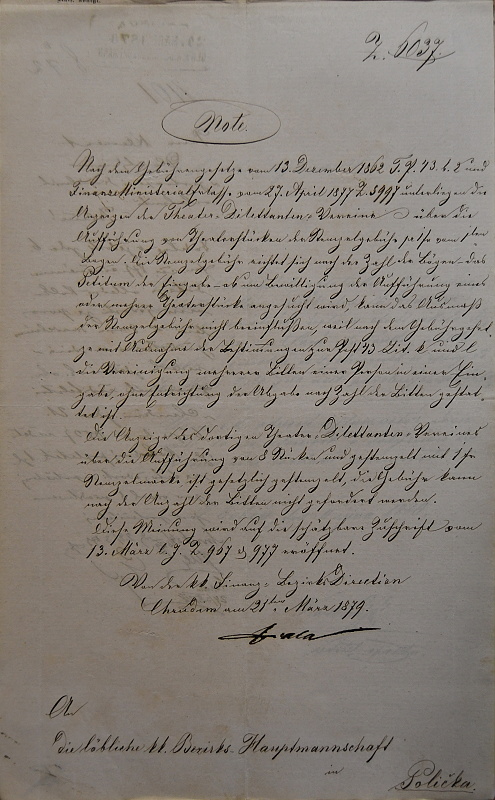 Z. 6037.
Note.
Nach dem Gebührengesetze vom 13. Dezember 1862 T. P. 43. b. 2 und
Finanz-Ministerialerlasse vom 27. April 1877 Z. 5997 unterliegen die
Anzeigen der Theater-Dilettanten-Vereine über die
Aufführung von Theaterstücken der Stempelgebühr vom
Bogen. Die Stempelgebühr richtet sich nach der Zahl der Bögen – das
Petitum der Eingabe – ob um Bewilligung der Aufführung eines
oder mehrerer Theaterstücke angesucht wird, kann das Ausmaß
der Stempelgebühr nicht beeinflußen, weil nach dem Gebührengeset-
ze mit Ausnahme der Bestimmungen zur Post 43 lit. k und l
die Vereinigung mehrerer Bitten einer Person in einer Ein-
gabe, ohne Entrichtung der Abgabe nach Zahl der Bitten gestat-
tet ist.
Die Anzeige des dortigen Theater-Dilettanten-Vereines
über die Aufführung von 3 Stücken und gestempelt mit 1 fr
Stempelmarke ist gesetzlich gestempelt, die Gebühr kann
nach der Anzahl der Bitten nicht gefordert werden.
Diese Meinung wird auf die schätzbare Zuschrift vom
13. März l. J. Z. 967 & 977 eröffnet.
Von der kk. Finanz-Bezirks Direction
Chrudim am 21ten März 1879.
An
die löbliche kk. Bezirks Hauptmannschaft
in
Polička.